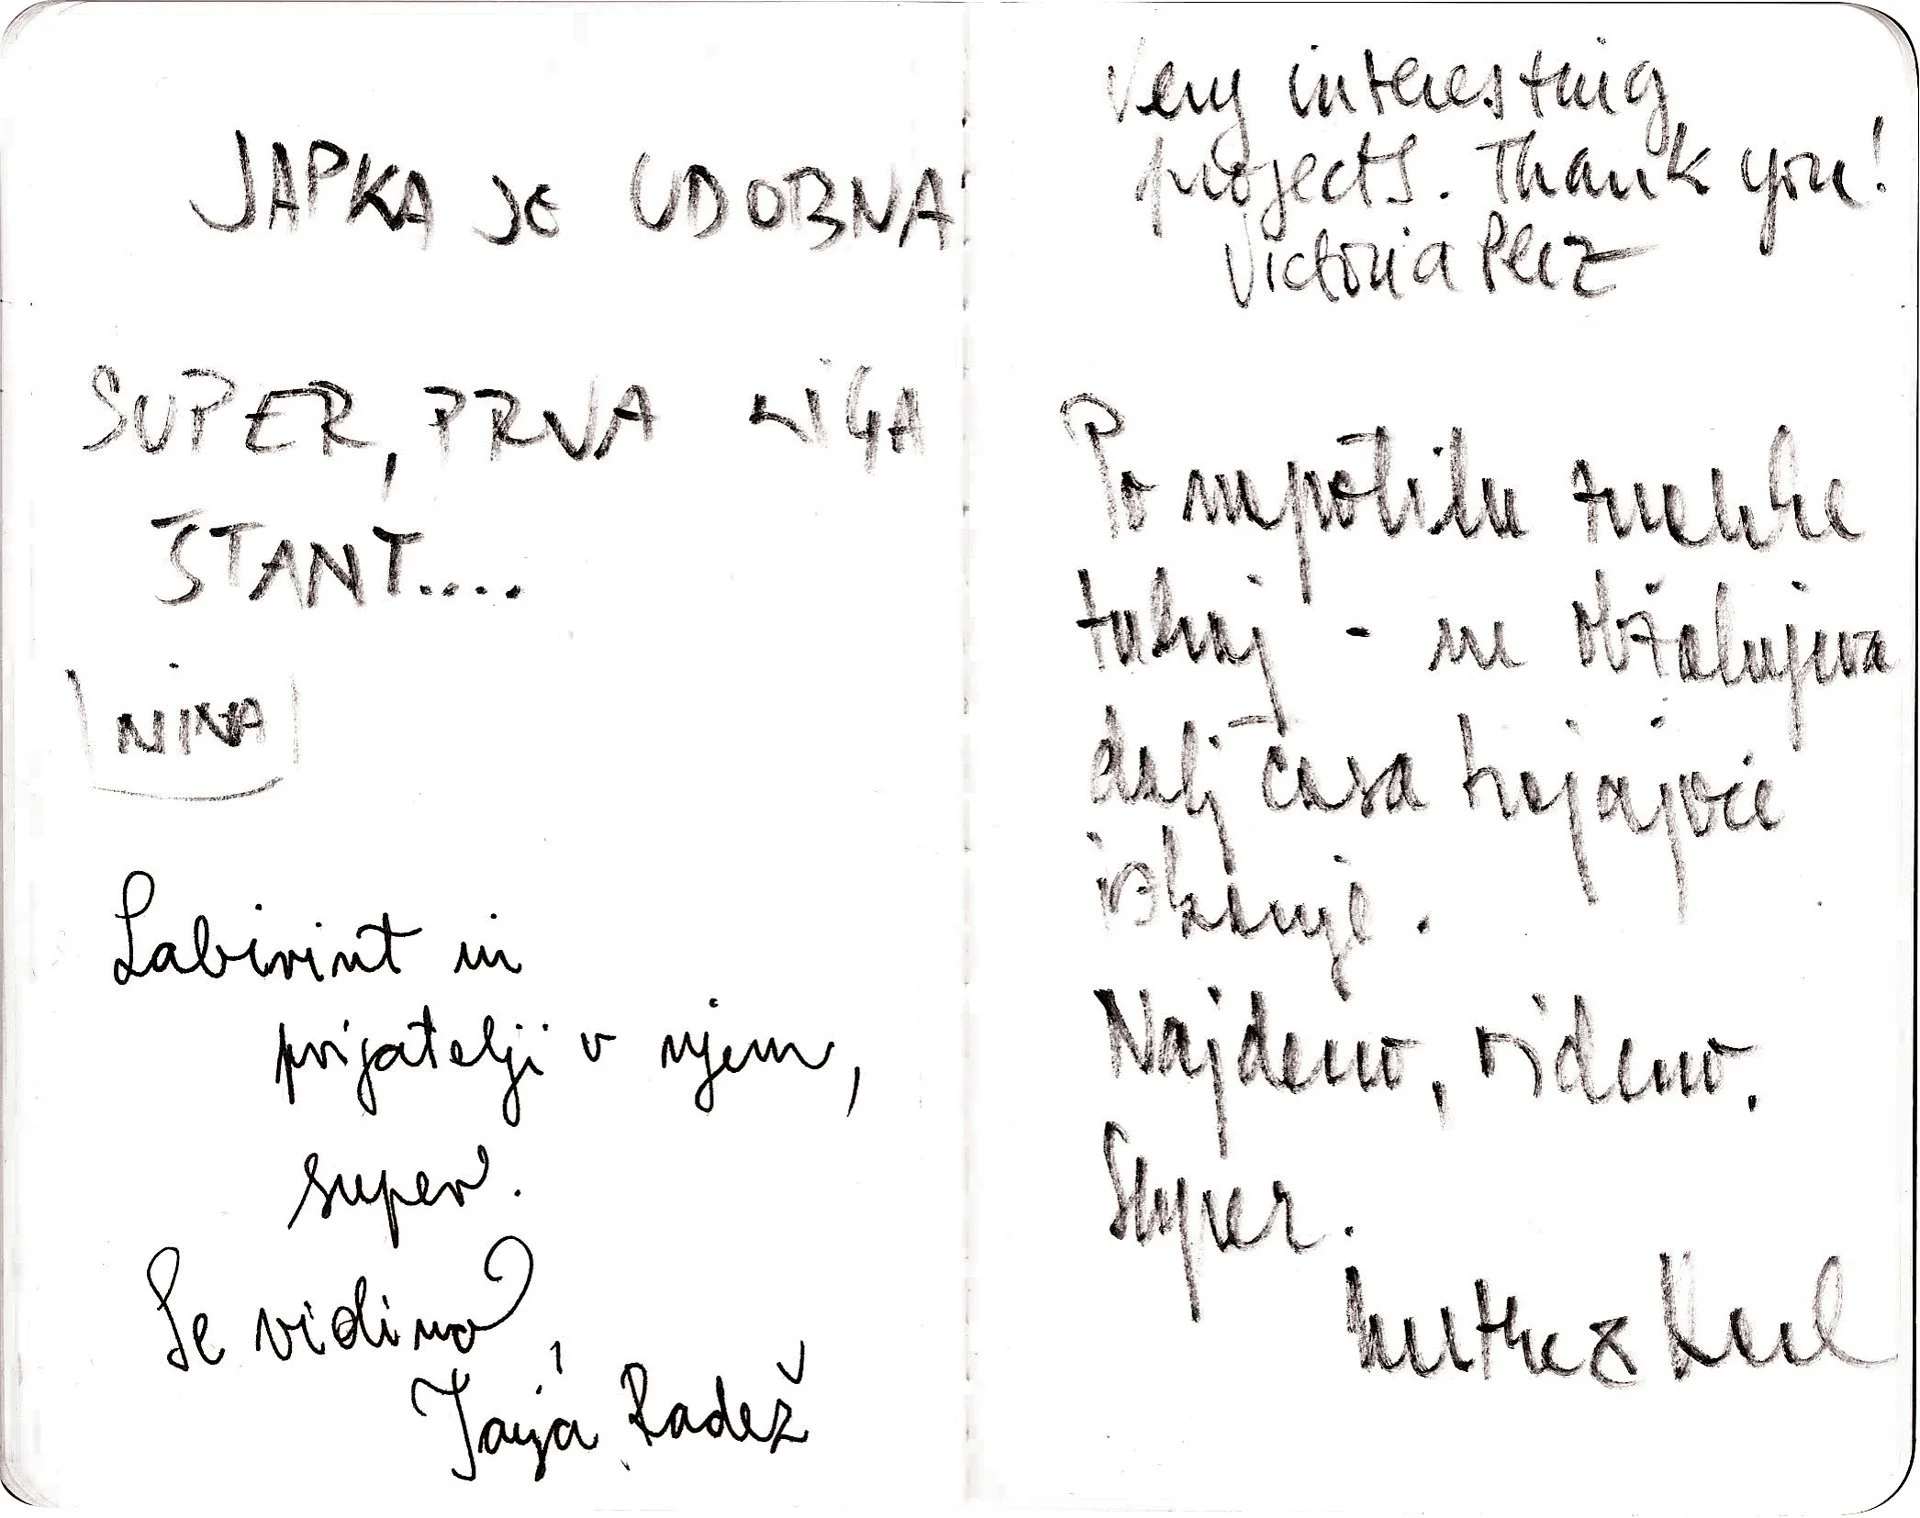 JAPKA JE UDOBNA
SUPER, PRVA LIGA
ŠTANT....
NINA
Labirint in
prijatelji v njem,
super.
Se vidimo,
Tanja Radež
Very interesting
projects. Thank you!
Victoria
Po naključju
tukaj - ne obžalujeva
dalj časa trajajoče
iskanje.
Najdemo, videmo.
Super.